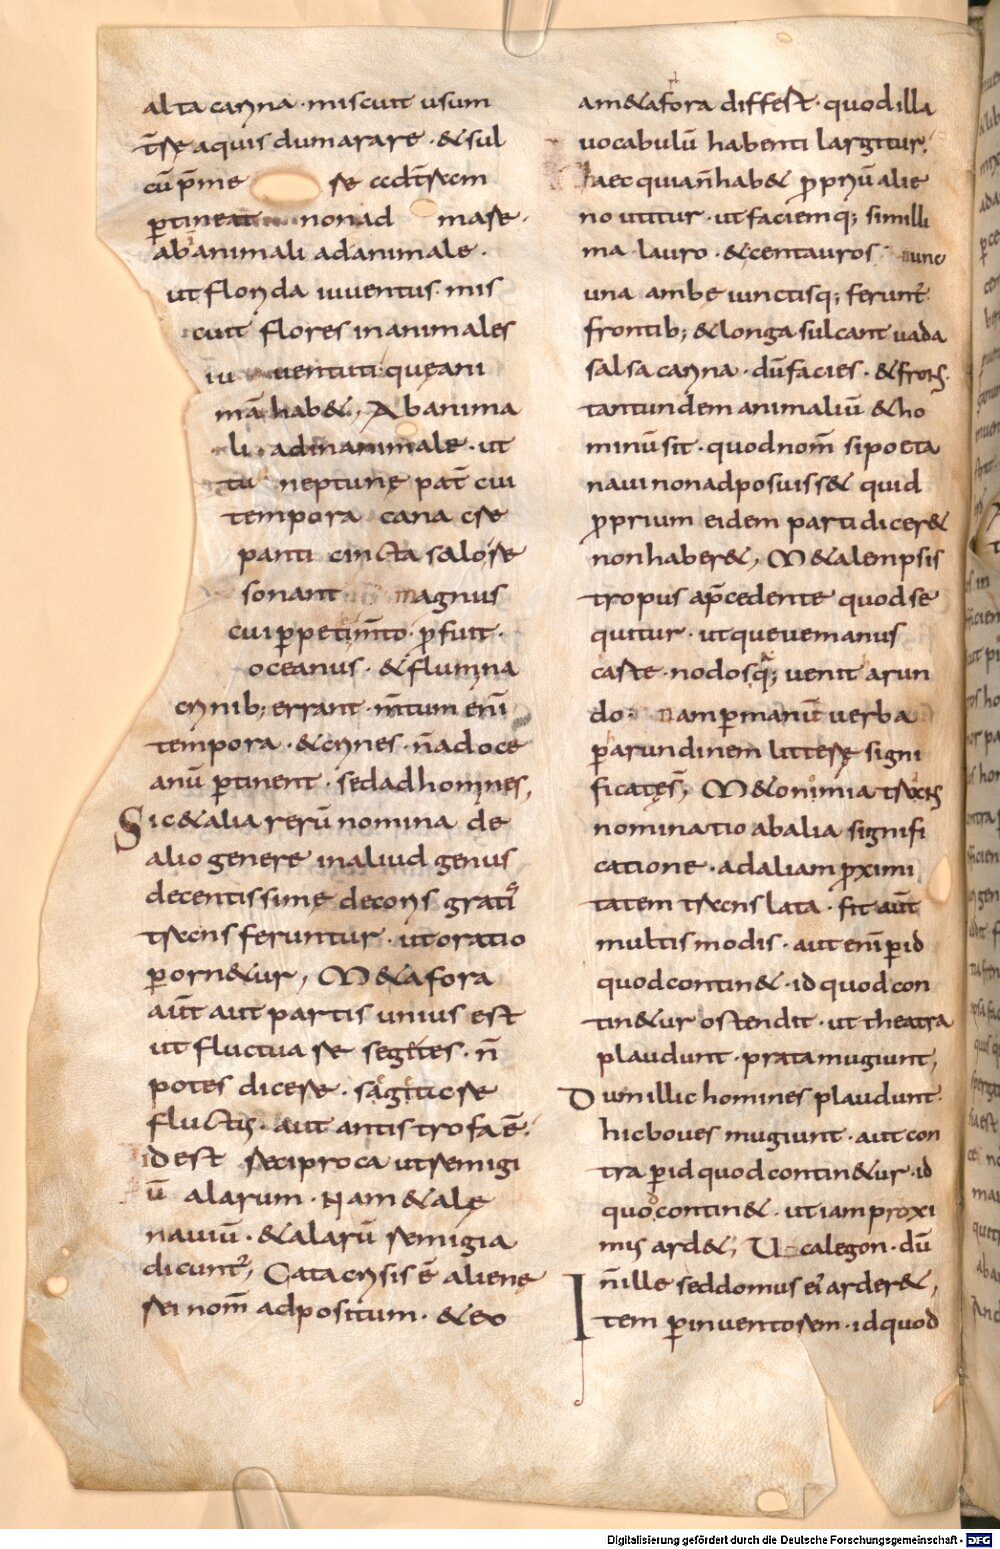 alta carina · miscuit usum
tr̄se aquis dum arare · & sul
cū p̄me se
p̱tineat non ad mare ·
ab animali ad animale ·
ut florida iuventus · mis
cuit flores inanimales
iu ventuti · que ani
mā hab&, Ab anima
li ad inanimale · ut
tu neptune pat̄ cui
tempora cana cre
panti cincta salo re
sonant magnus
cui p̱petim̄to · ꝓfuit ·
oceanus · & flumina
crinib; errant · m̄tum enī
tempora · & crines · n̄ ad oce
anū p̱tinent · sed ad homines,
Sic & alia rerū nomina de
alio genere in aliud genus
decentissime decoris grati
feruntur · ut oratio
p̱orn&ur, M&afora
aūt aut partis unius est
ut fluctuare segetes · n̄
potes dicere · sagitticore
fluctus · aut antistrofa ē ·
id est reciproca ut remigi
ū alarum · Nam & ale
naviū · & alarū remigia
dicunt᷒, Catacrisis ē aliene
rei nom̄ adpositum · & eo
am&afora differt · quod illa
vocabulū habenti largitur ·
haec quia n̄ hab& ꝓpriū alie
no utitur · ut faciemq; simili
ma · lauro · & centauros nunc
una ambe iunctisq; ferunt᷒
frontib; & longa sulcant vada
salsa carina · dū facies · & frons
tantundem animaliū & ho
minū sit · quod nom̄ si poeta
navi non adposuiss& quid
ꝓprium eidem parti dicer&
non haber&, M&alempsis
tropus ap̄cedente quod se
quitur · ut queve manus
caste · nodosq; venit arun
do · nam p̱ manū verba
p̱ arundinem littere signi
ficate s̄, M&onimia
nominatio ab alia signifi
catione · ad aliam ꝓximi
tatem lata · fit aūt
multis modis · aut enī p̱ id
quod contin& · id quod con
tin&ur ostendit · ut theatra
plaudunt · prata mugiunt,
Dum illic homines plaudunt ·
hic boves mugiunt · aut con
tra p̱ id quod contin&ur · id
quod contin& · ut iam proxi
mis ard&, Ucalegon · dū
n̄ ille sed domus ei᷒ arder&,
Item p̱ inventorem · id quod
Digitalisierung gefördert durch die Deutsche Forschungsgemeinschaft - DFG